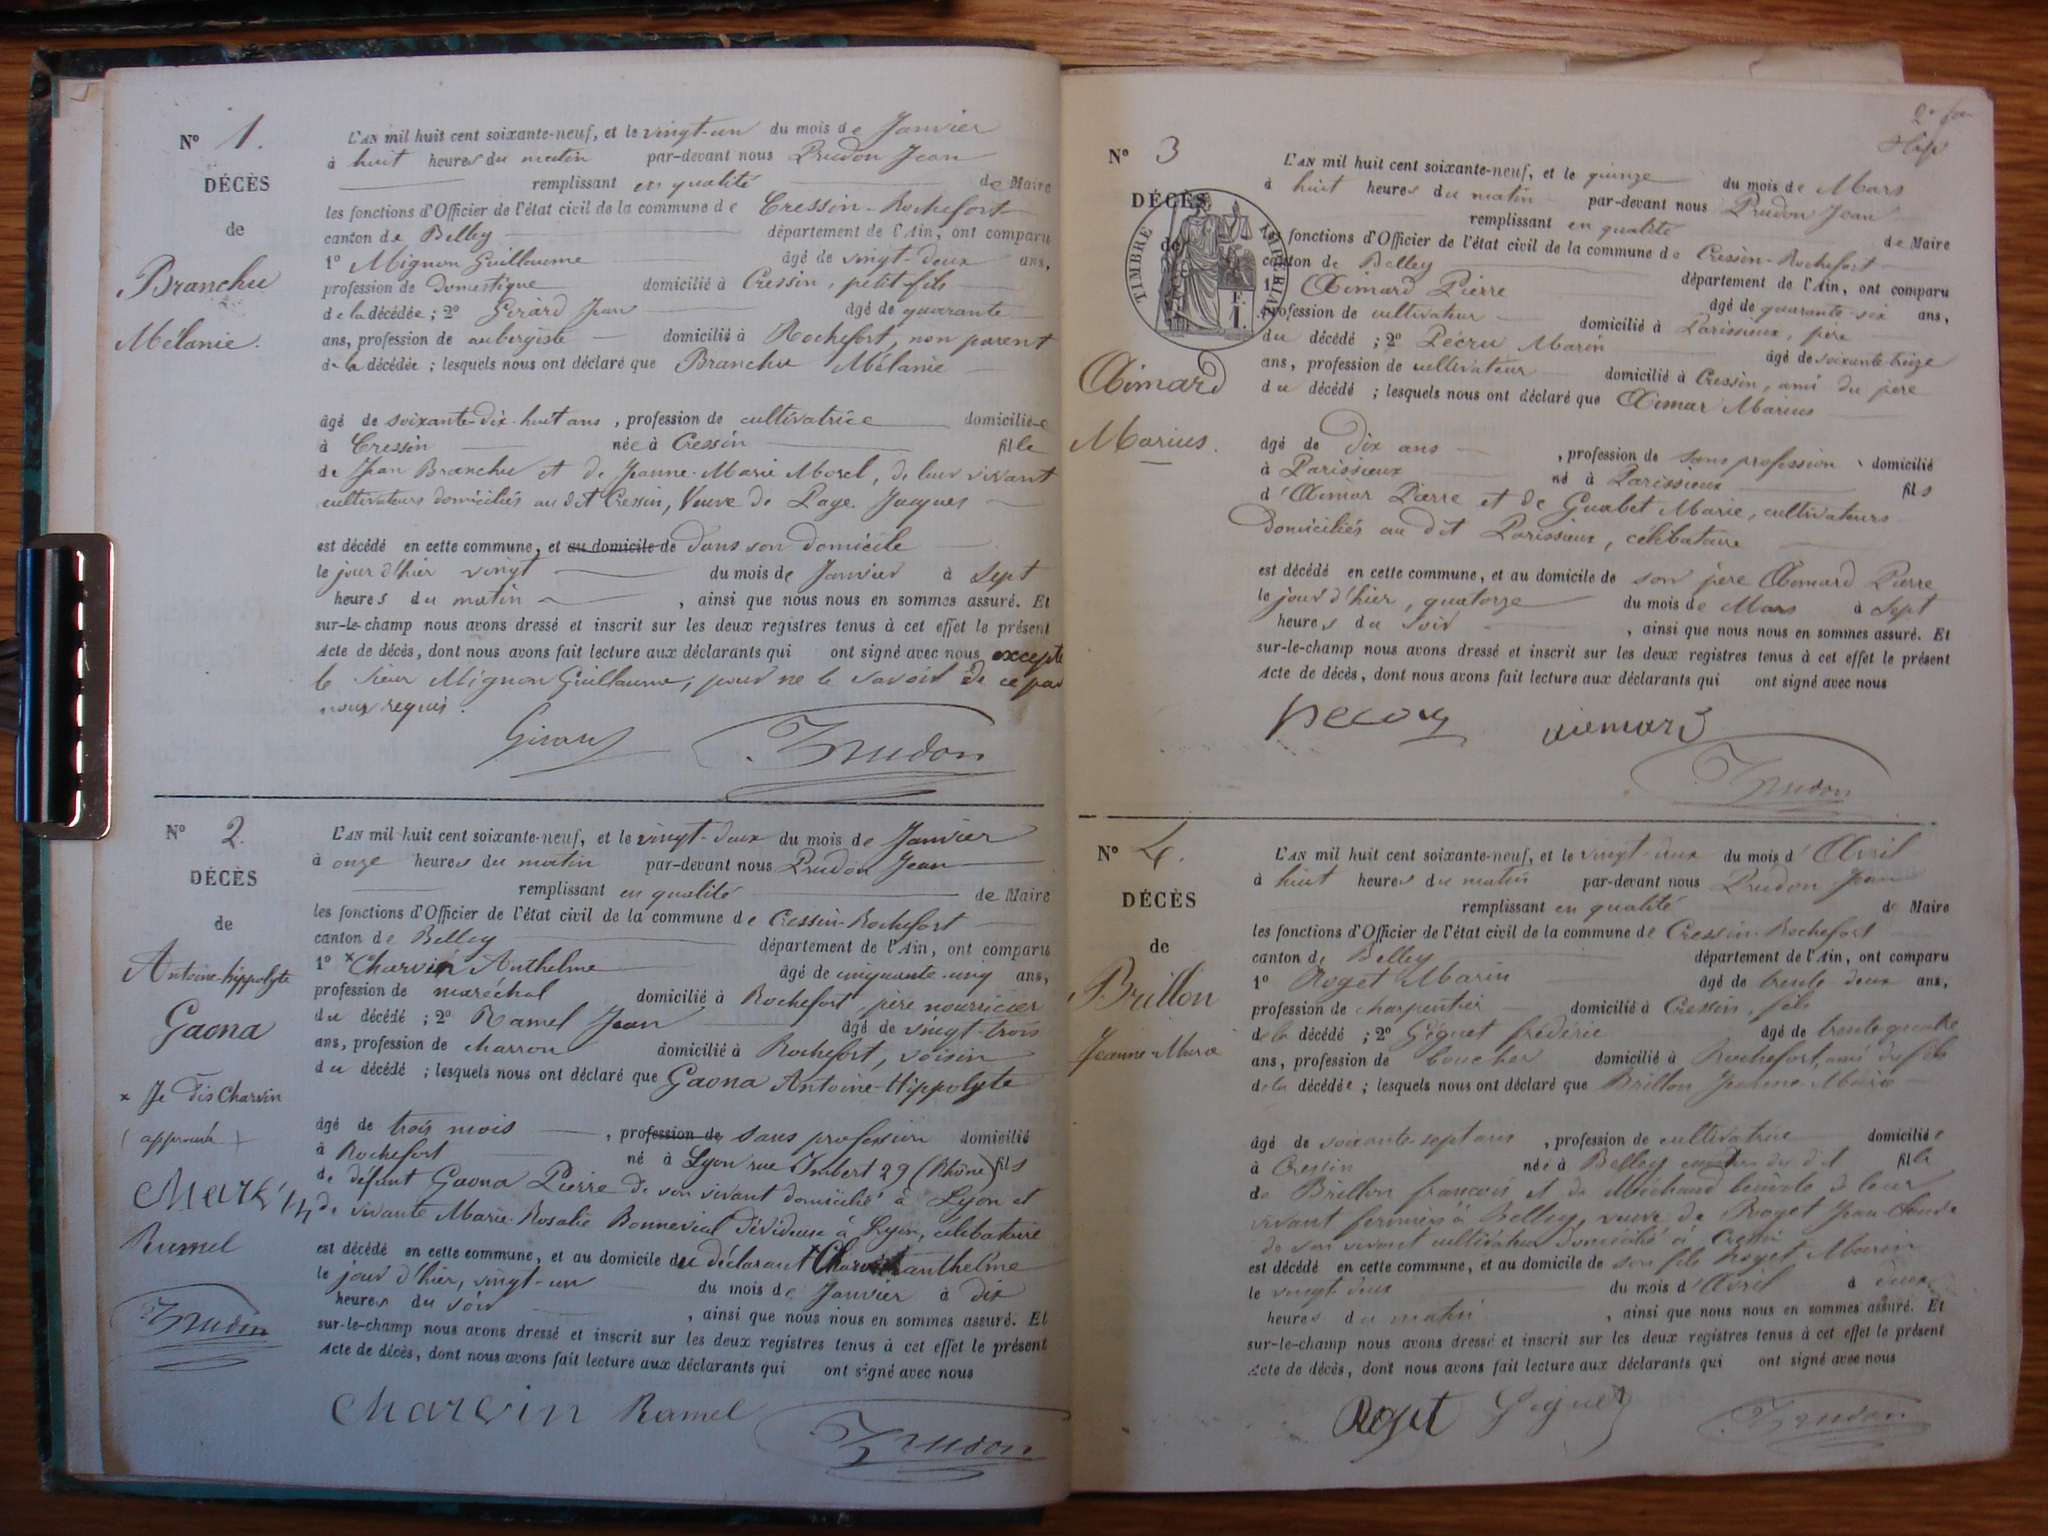 N° 1.
DÉCÈS
de
Branchu
Mélanie.
L'AN mil huit cent soixante-neuf, et le vingt-un du mois de Janvier
à huit heures du matin par-devant nous Prudon Jean
remplissant en qualité de Maire
les fonctions d'Officier de l'état civil de la commune de Cressin-Rochefort
canton de Belley département de l'Ain, ont comparu
1° Mignon Guillaume âgé de vingt-deux ans,
profession de domestique domicilié à Cressin, petit-fils
de la décédée ; 2° Girard Jean âgé de quarante
ans, profession de aubergiste domicilié à Rochefort, non parent
de la décédée ; lesquels nous ont déclaré que Branchu Mélanie
âgé de soixante-dix-huit ans, profession de cultivatrice domiciliée
à Cressin née à Cressin fille
de Jean Branchu et de Jeanne-Marie Morel, de leur vivant
cultivateurs domiciliés au dit Cressin, Veuve de Page Jacques
est décédé en cette commune, et au domicile de dans son domicile
le jour d'hier vingt du mois de Janvier à Sept
heures du matin, ainsi que nous nous en sommes assuré. Et
sur-le-champ nous avons dressé et inscrit sur les deux registres tenus à cet effet le présent
Acte de décès, dont nous avons fait lecture aux déclarants qui ont signé avec nous excepté
le Sieur Mignon Guillaume, pour ne le savoir de ce par
nous requis.
Girard Prudon
N° 2.
DÉCÈS
de
Antoine-hippolyte
Gaona
x Je dis Charvin
(approuvé)
Charvin
Ramel
Prudon
L'AN mil huit cent soixante-neuf, et le vingt-deux du mois de Janvier
à onze heures du matin par-devant nous Prudon Jean
remplissant en qualité de Maire
les fonctions d'Officier de l'état civil de la commune de Cressin-Rochefort
canton de Belley département de l'Ain, ont comparu
1° x Charvin Anthelme âgé de cinquante-un ans,
profession de maréchal domicilié à Rochefort, père nourricier
du décédé ; 2° Ramel Jean âgé de vingt-trois
ans, profession de charron domicilié à Rochefort, voisin
du décédé ; lesquels nous ont déclaré que Gaona Antoine-Hippolyte
âgé de trois mois, profession de sans profession domicilié
à Rochefort né à Lyon rue Imbert 29 (Rhône) fils
de défunt Gaona Pierre de son vivant domicilié à Lyon et
de vivante Marie-Rosalie Bonnevial dévideuse à Lyon, célibataire
est décédé en cette commune, et au domicile du déclarant Charvin anthelme
le jour d'hier, vingt-un du mois de Janvier à dix
heures du soir, ainsi que nous nous en sommes assuré. Et
sur-le-champ nous avons dressé et inscrit sur les deux registres tenus à cet effet le présent
Acte de décès, dont nous avons fait lecture aux déclarants qui ont signé avec nous
Charvin Ramel Prudon
N° 3
DÉCÈS
de
TIMBRE IMPÉRIAL
1 F.
Aimard
Marius.
L'AN mil huit cent soixante-neuf, et le quinze du mois de Mars
à huit heures du matin par-devant nous Prudon Jean
remplissant en qualité de Maire
les fonctions d'Officier de l'état civil de la commune de Cressin-Rochefort
canton de Belley département de l'Ain, ont comparu
1° Aimard Pierre âgé de quarante-six ans,
profession de cultivateur domicilié à Parissieux, père
du décédé ; 2° Pécru Marin âgé de soixante-treize
ans, profession de cultivateur domicilié à Cressin, ami du père
du décédé ; lesquels nous ont déclaré que Aimar Marius
âgé de dix ans, profession de sans profession domicilié
à Parissieux né à Parissieux fils
d'Aimar Pierre et de Guabet Marie, cultivateurs
domiciliés au dit Parissieux, célibataire
est décédé en cette commune, et au domicile de son père Aimard Pierre
le jour d'hier, quatorze du mois de Mars à Sept
heures du soir, ainsi que nous nous en sommes assuré. Et
sur-le-champ nous avons dressé et inscrit sur les deux registres tenus à cet effet le présent
Acte de décès, dont nous avons fait lecture aux déclarants qui ont signé avec nous
aimard
Prudon
N° 4.
DÉCÈS
de
Brillon
Jeanne-Marie
L'AN mil huit cent soixante-neuf, et le vingt-deux du mois d'Avril
à huit heures du matin par-devant nous Prudon Jean
remplissant en qualité de Maire
les fonctions d'Officier de l'état civil de la commune de Cressin-Rochefort
canton de Belley département de l'Ain, ont comparu
1° Roget Marin âgé de trente deux ans,
profession de charpentier domicilié à Cressin, fils
de la décédé ; 2° Géguet frédéric âgé de trente quatre
ans, profession de boucher domicilié à Rochefort, ami du fils
de la décédée ; lesquels nous ont déclaré que Brillon Jeanne-Marie
âgé de soixante-sept ans, profession de cultivatrice domiciliée
à Cressin née à Belley fille
de Brillon françois et de Michaud benoite de leur
vivant fermiers à Belley, veuve de Roget Jean-Claude
de son vivant cultivateur domicilié à Cressin
est décédé en cette commune, et au domicile de son fils Roget Marin
le vingt deux du mois d'Avril à deux
heures du matin, ainsi que nous nous en sommes assuré. Et
sur-le-champ nous avons dressé et inscrit sur les deux registres tenus à cet effet le présent
Acte de décès, dont nous avons fait lecture aux déclarants qui ont signé avec nous
Roget Géguet Prudon